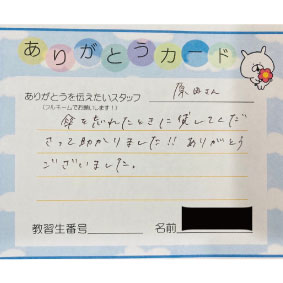 ありがとうカード
ありがとうを伝えたいスタッフ
(フルネームでお願いします!!)
原田さん
傘を忘れたときに貸してくだ
さって助かりました!! ありがとう
ございました。
教習生番号
名前